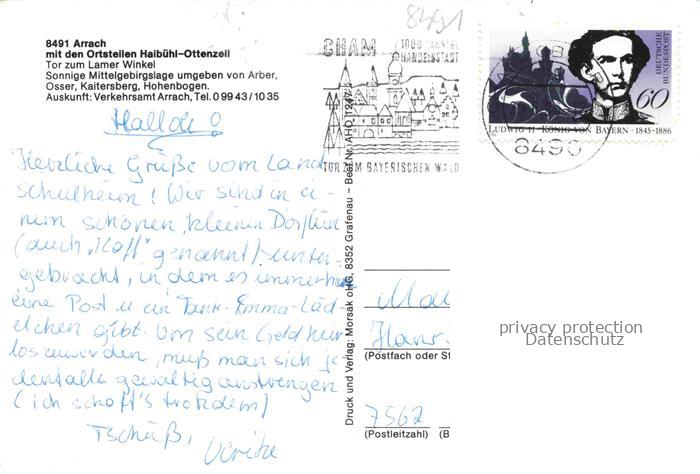 8491
8491 Arrach
mit den Ortsteilen Haibühl-Ottenzell
Tor zum Lamer Winkel
Sonnige Mittelgebirgslage umgeben von Arber,
Osser, Kaitersberg, Hohenbogen.
Auskunft: Verkehrsamt Arrach, Tel. 0 99 43/10 35
CHAM
1000 JÄHRIGE
HANDELSSTADT
TOR ZUM BAYERISCHEN WALD
8490
DEUTSCHE
BUNDESPOST
60
LUDWIG II · KÖNIG VON BAYERN · 1845-1886
Hallole!
Herzliche Grüße vom Land
schulheim! Wir sind in ei-
nem schönen, kleinen Dörflein
(auch "Kaff" genannt) unter-
gebracht, in dem es immerhin
eine Post u. ein Tante-Emma-Läd-
elchen gibt. Um sein Geld hier
loszuwerden, muß man sich je-
denfalls gewaltig anstrengen
(ich schaff's trotzdem)
Tschüß,
Ulrike
Druck und Verlag: Morsak oHG, 8352 Grafenau – Best.Nr. AHO 1124
Hans-
(Postfach oder St
7562
(Postleitzahl) (B
privacy protection
Datenschutz